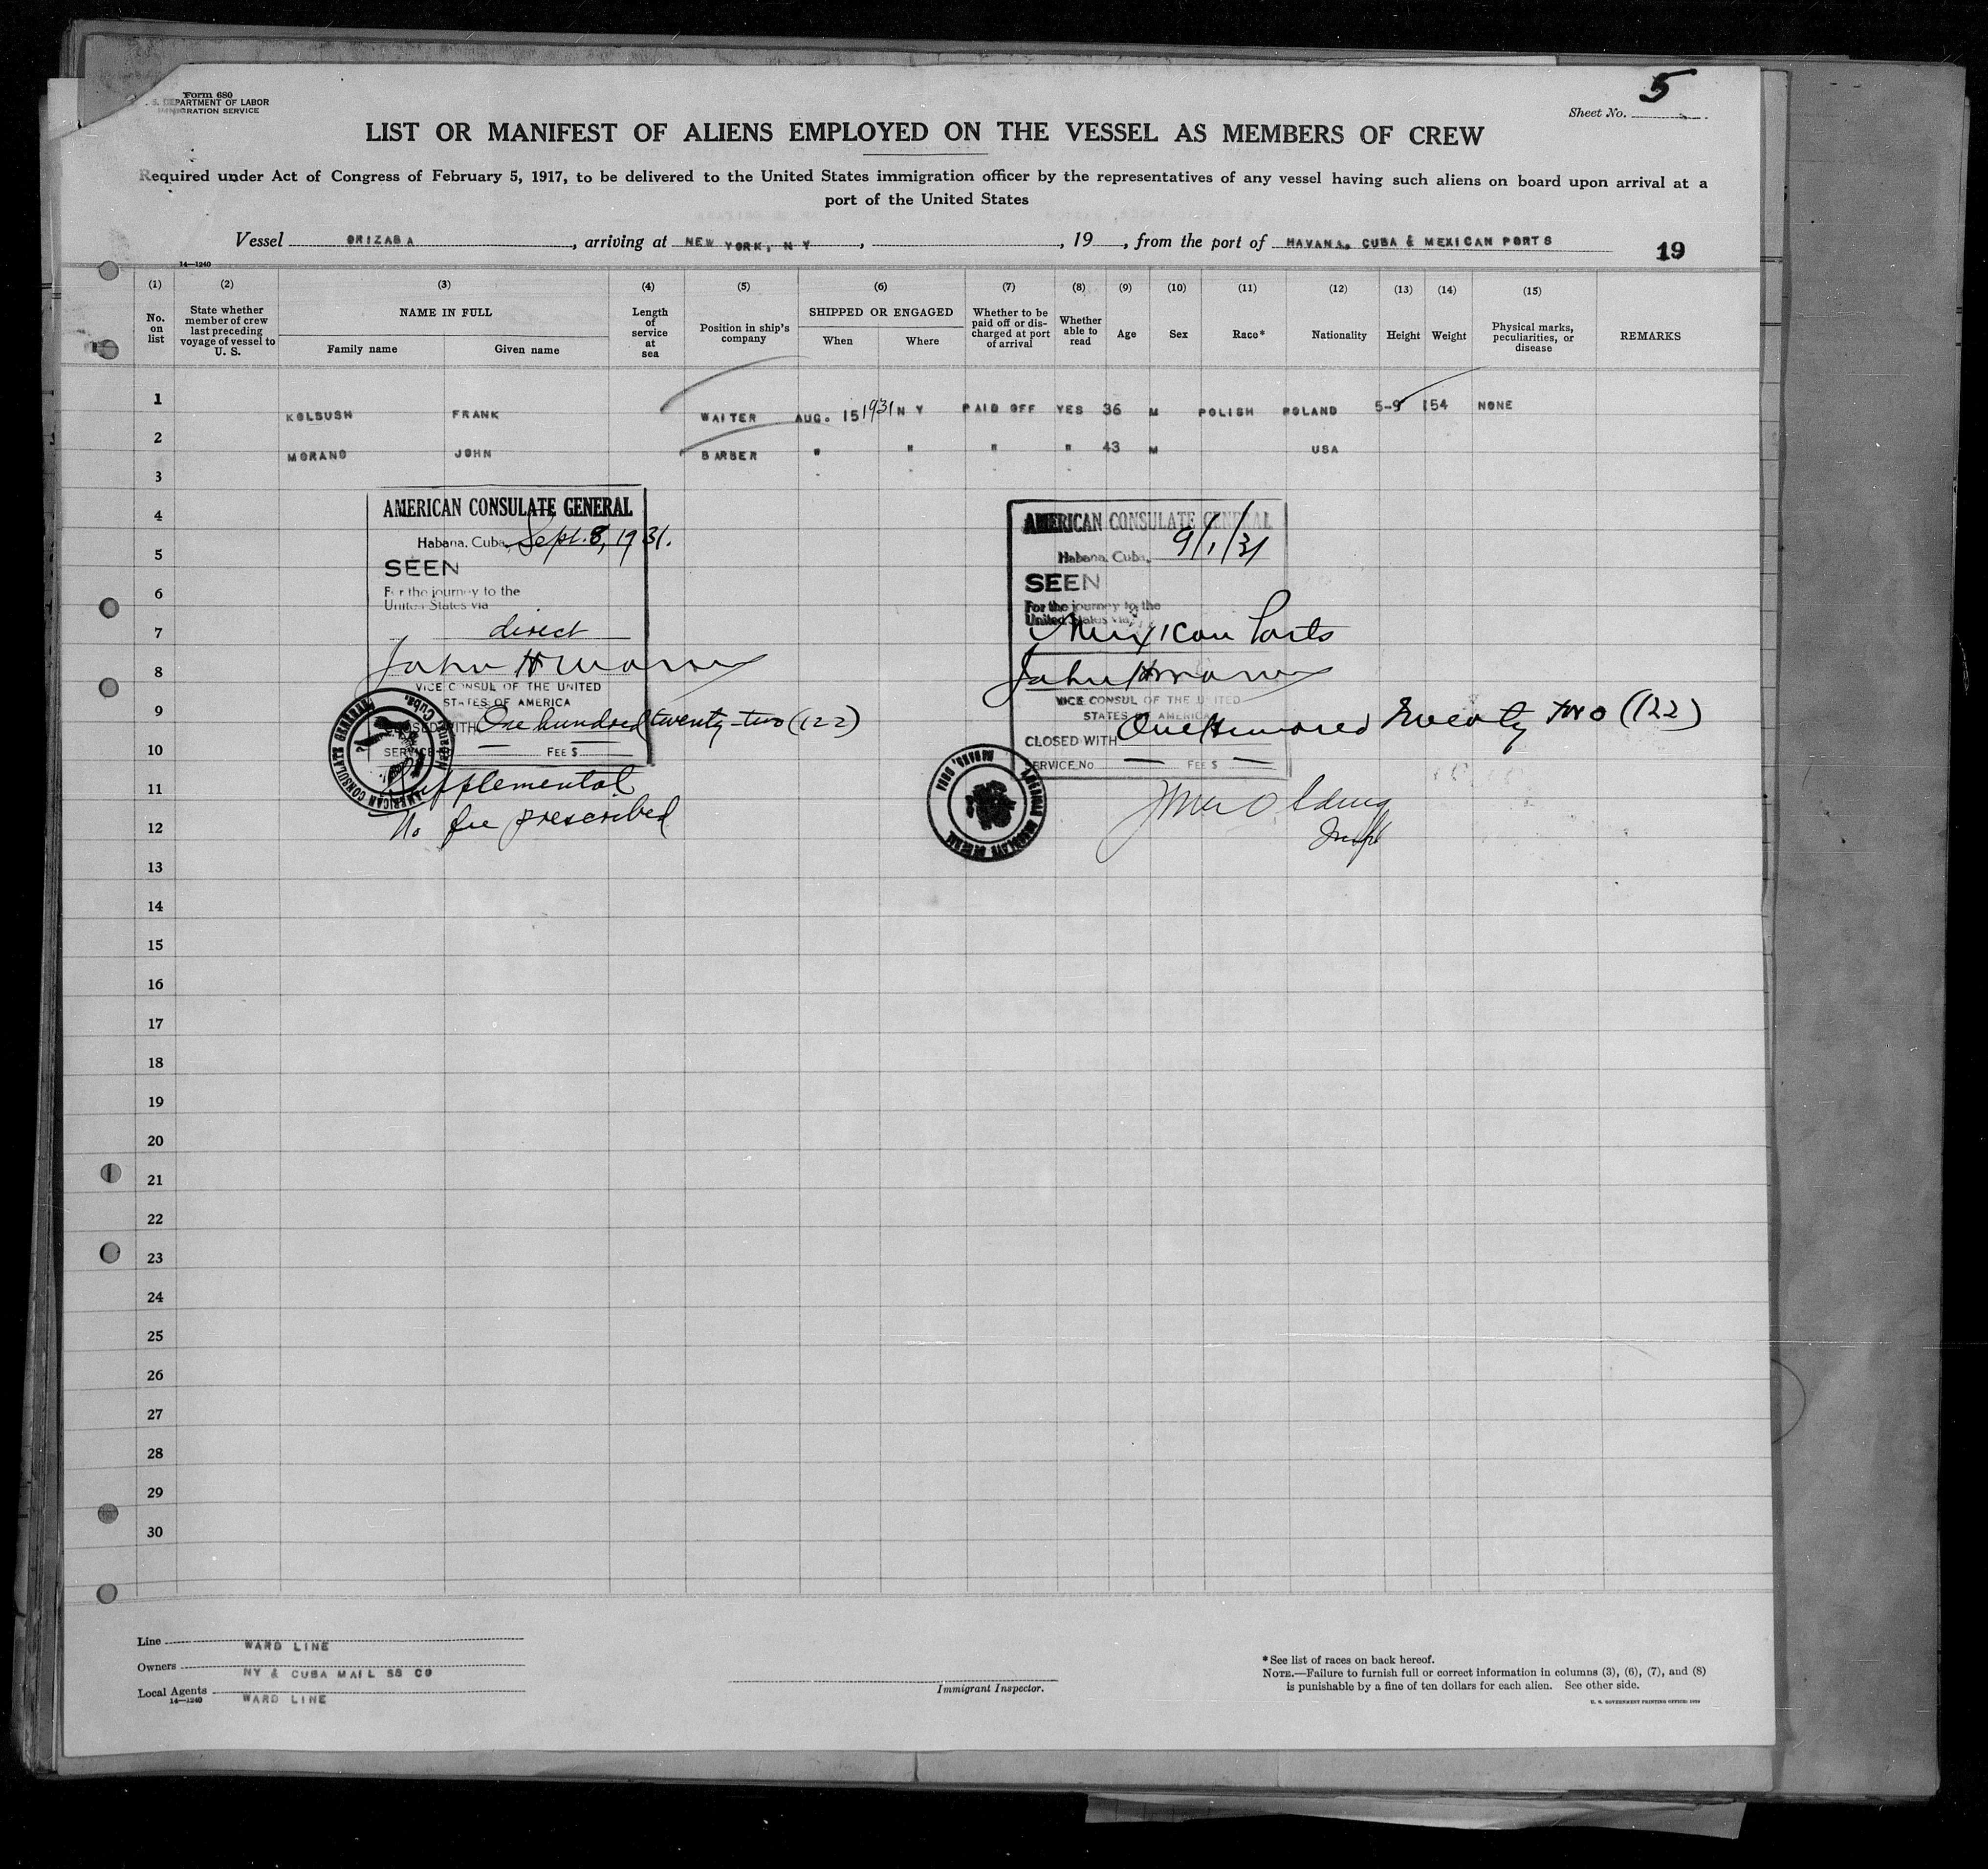 Form 680
U. S. DEPARTMENT OF LABOR
IMMIGRATION SERVICE
Sheet No. 5
LIST OR MANIFEST OF ALIENS EMPLOYED ON THE VESSEL AS MEMBERS OF CREW
Required under Act of Congress of February 5, 1917, to be delivered to the United States immigration officer by the representatives of any vessel having such aliens on board upon arrival at a
port of the United States
Vessel ORIZABA, arriving at NEW YORK, N Y, , 19 , from the port of HAVANA, CUBA & MEXICAN PORTS
19
14—1240
(1) (2) (3) (4) (5) (6) (7) (8) (9) (10) (11) (12) (13) (14) (15)
No. on list
State whether member of crew last preceding voyage of vessel to U. S.
NAME IN FULL
Family name
Given name
Length of service at sea
Position in ship's company
SHIPPED OR ENGAGED
When
Where
Whether to be paid off or discharged at port of arrival
Whether able to read
Age
Sex
Race*
Nationality
Height
Weight
Physical marks, peculiarities, or disease
REMARKS
1 KOLBUSH FRANK WAITER AUG. 15 1931 N Y PAID OFF YES 36 M POLISH POLAND 5-9 154 NONE
2 MORANO JOHN BARBER " " " " 43 M USA
3
4
5
6
7
8
9
10
11
12
13
14
15
16
17
18
19
20
21
22
23
24
25
26
27
28
29
30
AMERICAN CONSULATE GENERAL
Habana, Cuba, Sept. 8, 1931.
SEEN
For the journey to the
United States via
direct
VICE CONSUL OF THE UNITED
STATES OF AMERICA
CLOSED WITH One hundred twenty-two (122)
SERVICE No — FEE $ —
Supplemental
No fee prescribed
AMERICAN CONSULATE GENERAL
Habana, Cuba, 9/1/31
SEEN
For the journey to the
United States via
Mexican Ports
VICE CONSUL OF THE UNITED
STATES OF AMERICA
CLOSED WITH One Hundred Twenty Two (122)
SERVICE No. — FEE $ —
AMERICAN CONSULATE GENERAL
HABANA, CUBA
Insp
Line WARD LINE
Owners NY & CUBA MAIL SS CO
Local Agents WARD LINE
14—1240
Immigrant Inspector.
*See list of races on back hereof.
NOTE.—Failure to furnish full or correct information in columns (3), (6), (7), and (8)
is punishable by a fine of ten dollars for each alien. See other side.